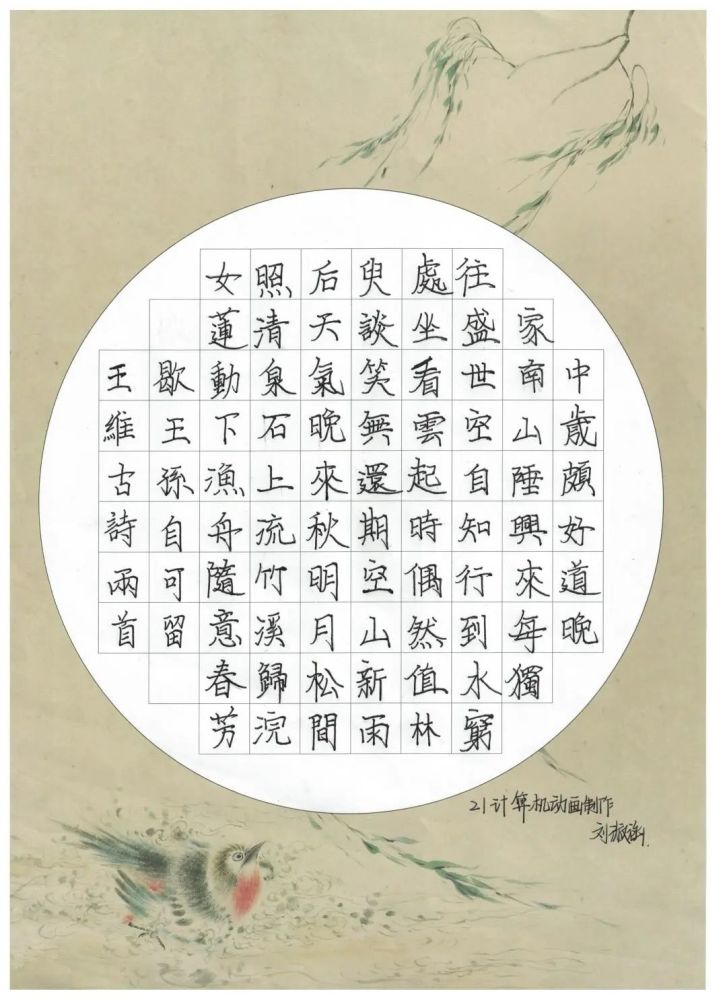 中歲頗好道晚
家南山陲興來每獨
往盛世空自知行到水窮
處坐看雲起時偶然值林
臾談笑無還期空山新雨
后天氣晚來秋明月松間
照清泉石上流竹溪歸浣
女蓮動下漁舟隨意春芳
歇王孫自可留
王維古詩兩首
21计算机动画制作
刘振